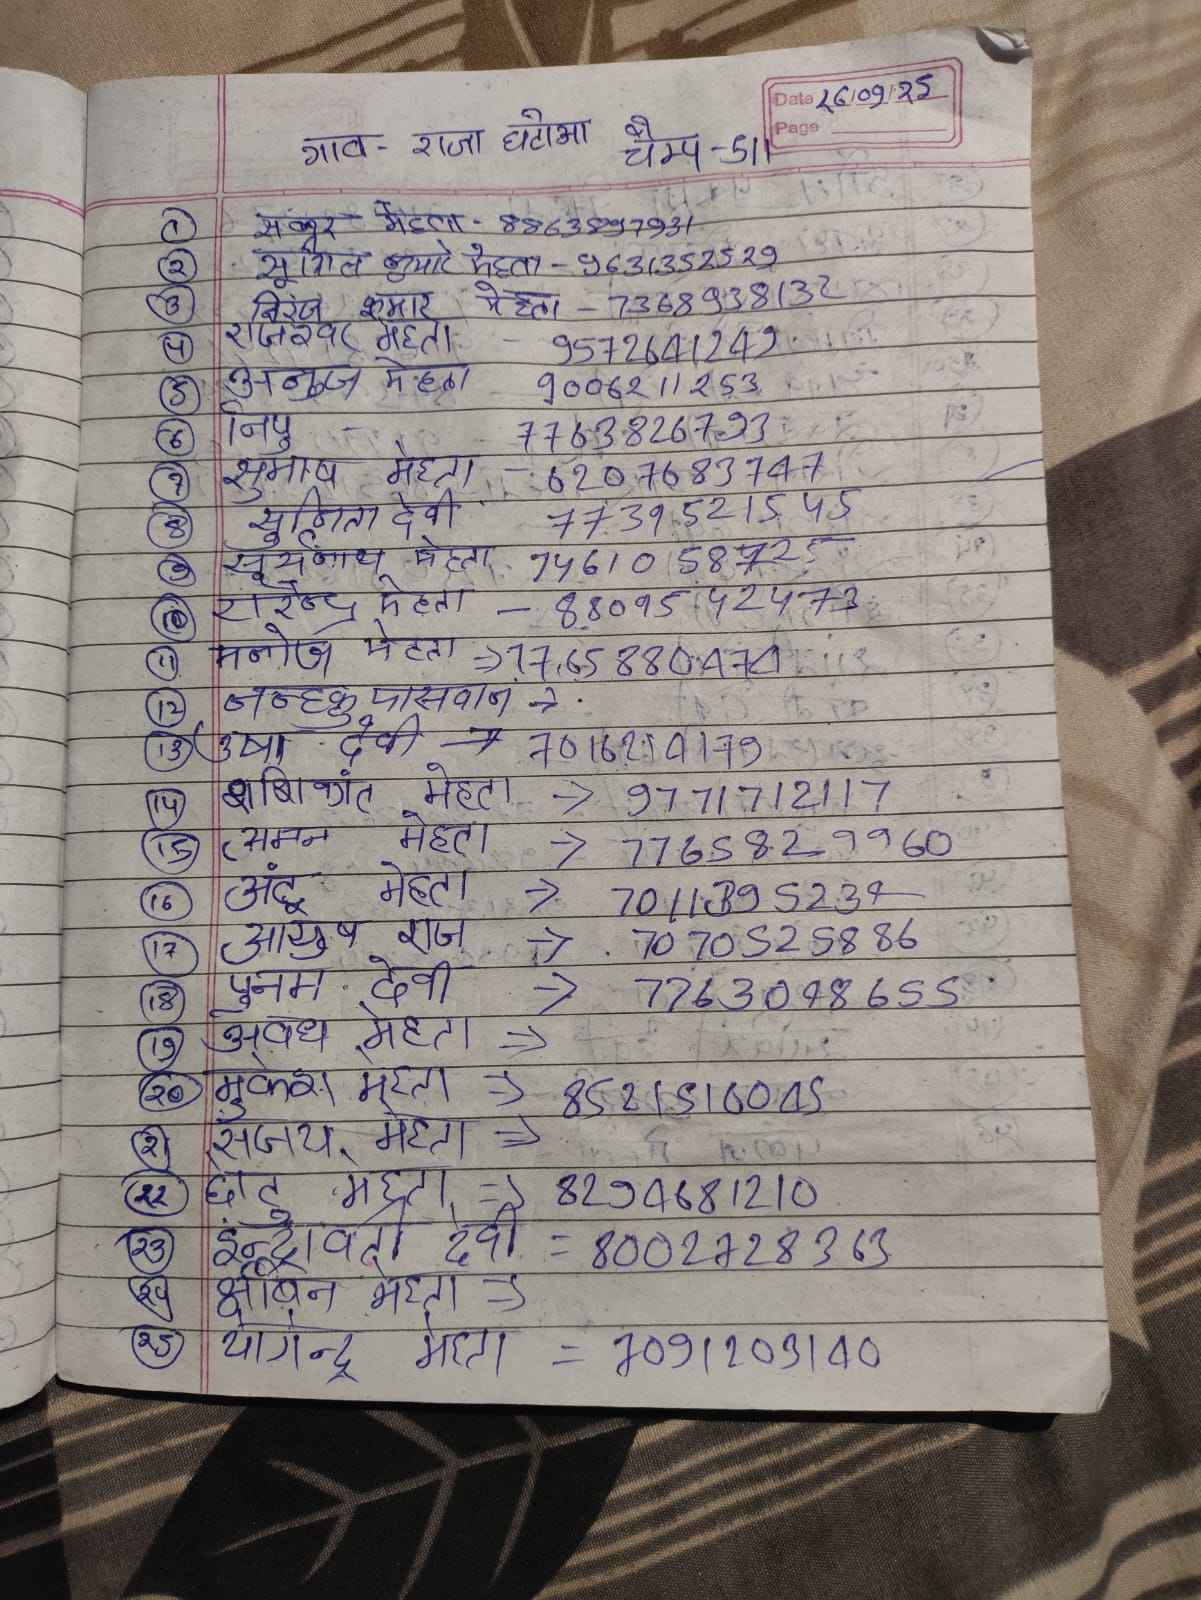 Date 26/09/25
Page
गाव - राजा घटोमा कैम्प - 511
① मेहता - 8863897931
② सुशिल कुमार मेहता - 9631352529
③ निरंज कुमार मेहता - 7368938132
4 राजेश्वर मेहता - 9572641249
⑤ अनुज मेहता 9006211253
⑥ निपु - 7763826793
⑦ सुमाष मेहता - 6207683747
⑧ सुनिता देवी 7739521545
⑨ सूर्यनाथ मेहता 7461058725
⑩ मेहता - 8809542473
11 मनोज मेहता => 7765880474
12 नन्हकु पासवान ->
13 उषा देवी -> 7016214179
14 शशिकांत मेहता -> 9771712117
15 समन मेहता -> 7765829960
16 अंदू मेहता -> 7011395234
17 आयुष राज -> 7070525886
18 पुनम देवी -> 7763048655
19 अवध मेहता =>
20 मुकेश मेहता => 8521516045
21 संजय मेहता =>
22 छोटु मेहता => 8294681210
23 इंन्द्रावती देवी = 8002728363
24 मेहता =>
25 योगेन्द्र मेहता = 7091203140